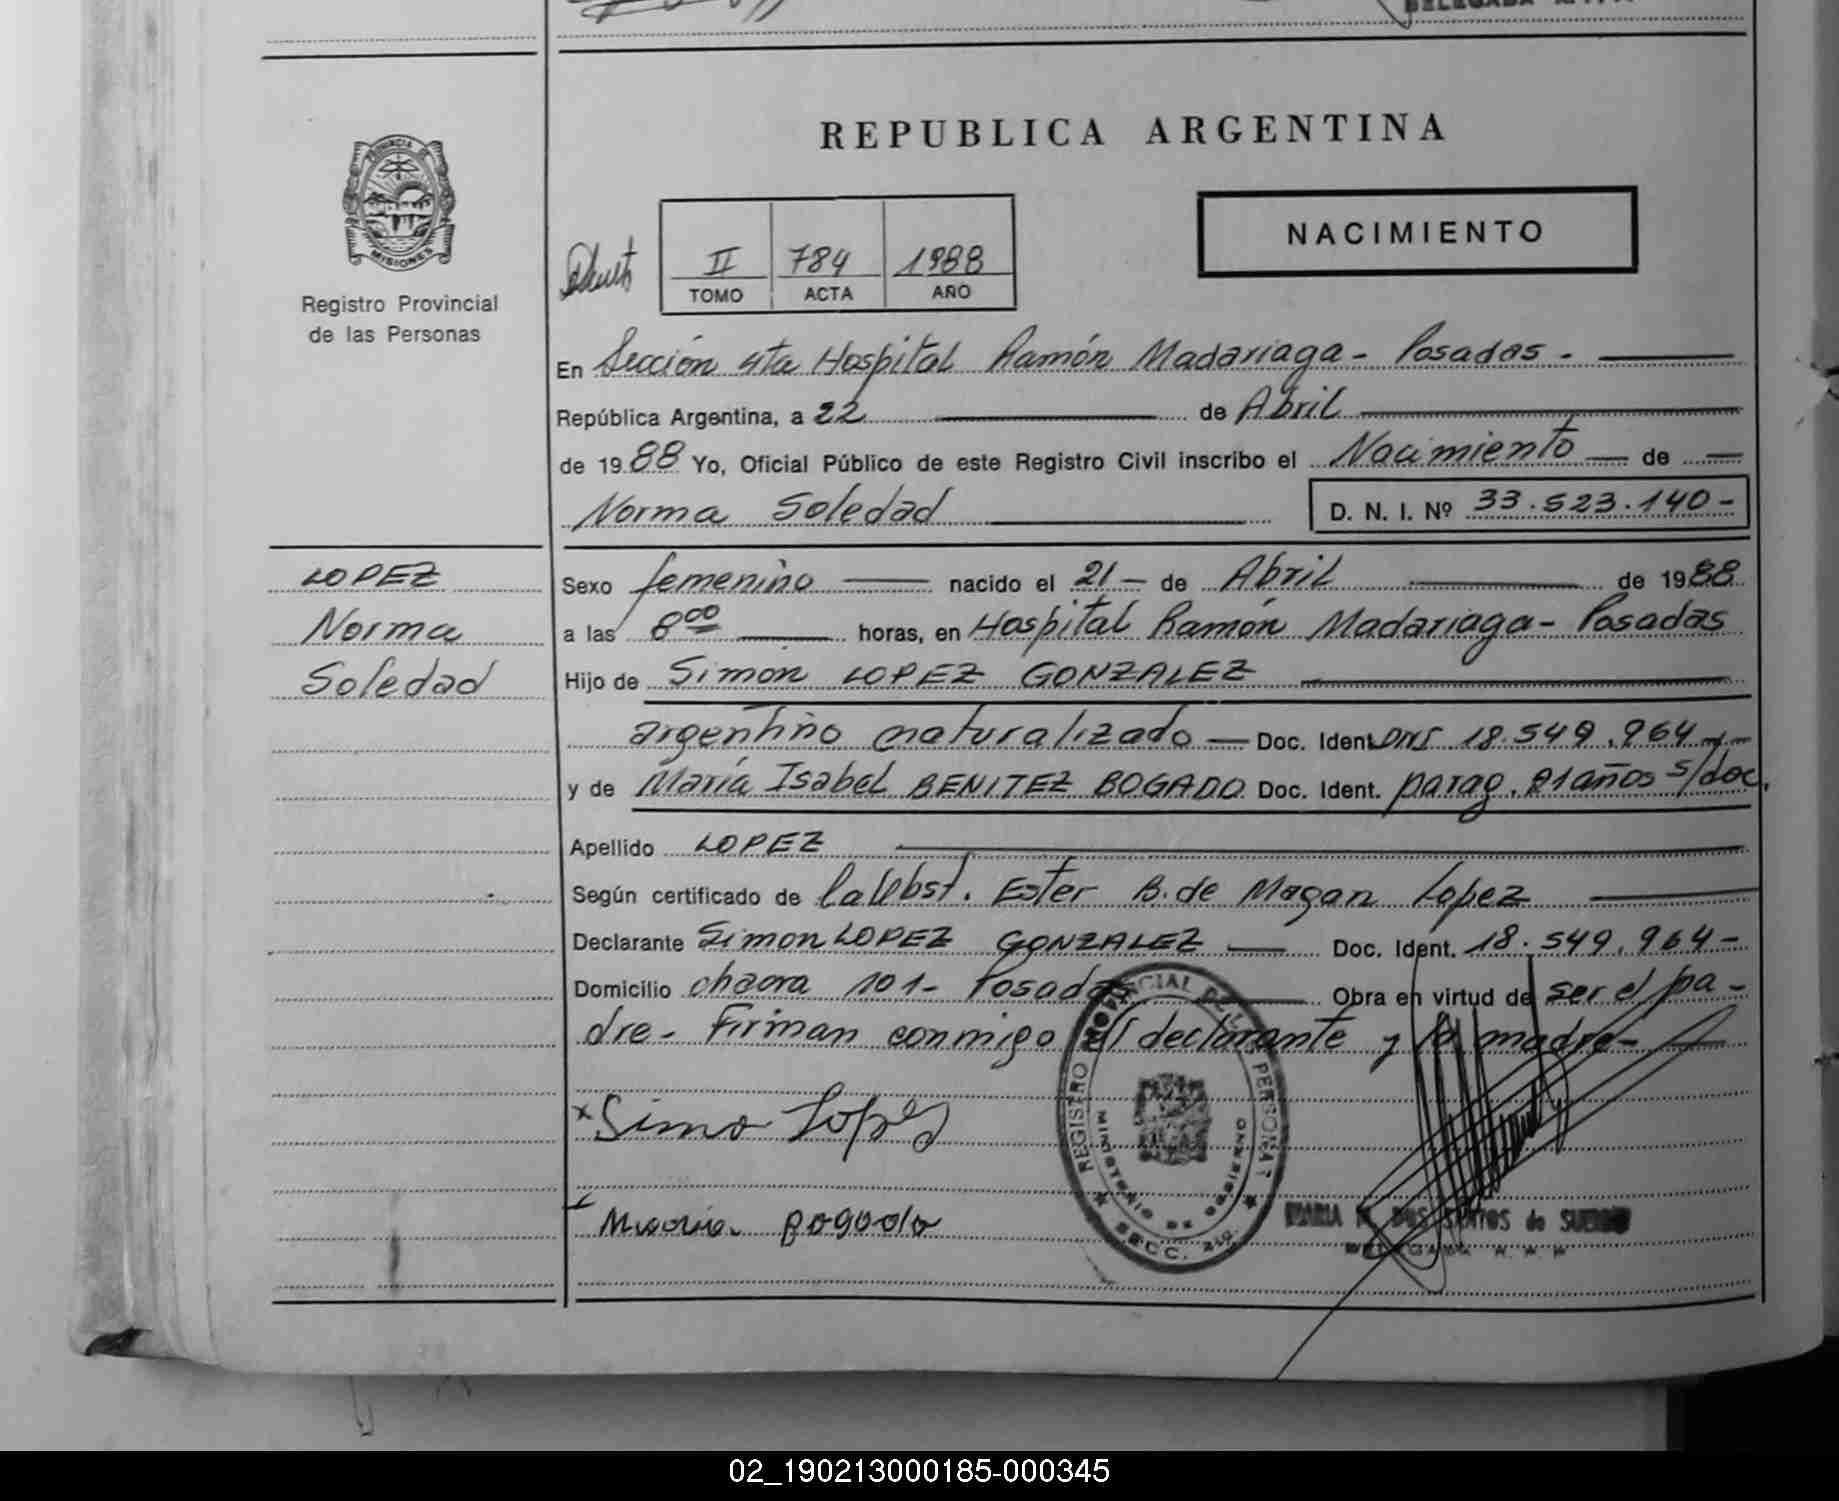 PROVINCIA DE
MISIONES
Registro Provincial
de las Personas
REPUBLICA ARGENTINA
NACIMIENTO
II 784 1988
TOMO ACTA AÑO
En Sección 4ta Hospital Ramón Madariaga - Posadas -
República Argentina, a 22 de Abril
de 1988 Yo, Oficial Público de este Registro Civil inscribo el Nacimiento de
Norma Soledad D. N. I. Nº 33.523.140-
LOPEZ
Norma
Soledad
Sexo femenino nacido el 21 de Abril de 1988
a las 8 00 horas, en Hospital Ramón Madariaga - Posadas
Hijo de Simón LOPEZ GONZALEZ
argentino naturalizado Doc. Ident. DNI 18.549.964
y de María Isabel BENITEZ BOGADO Doc. Ident. parag. 21 años s/doc.
Apellido LOPEZ
Según certificado de la Obst. Ester B. de Magan Lopez
Declarante Simon LOPEZ GONZALEZ Doc. Ident. 18.549.964-
Domicilio chacra 101- Posadas Obra en virtud de ser el pa-
dre- Firman conmigo el declarante y la madre-
x Simo Lopes
Maria Bogado
REGISTRO PROVINCIAL DE LAS PERSONAS
MINISTERIO DE GOBIERNO
SECC.
MARIA DOS SANTOS de
02_190213000185-000345